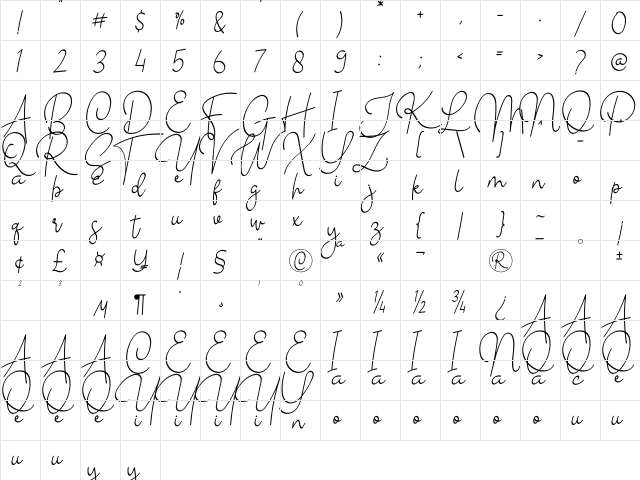 ! # $ % & ( ) * + , - . / 0
1 2 3 4 5 6 7 8 9 : ; < = > ? @
A B C D E F G H I J K L M N O P
Q R S T U V W X Y Z [ \ ]
a b c d e f g h i j k l m n o p
q r s t u v w x y z { | } ~
¡ ¢ £ ¤ ¥ ¦ § ¨ © ª « ¬ ® ¯ ° ±
2 3 µ ¶ · 1 0 » 1/4 1/2 3/4 ¿
A A A A A A C E E E E I I I I N
O O O O O O U U U U Y a a a a a a c e
e e e i i i i n o o o o o o u u
u u y y